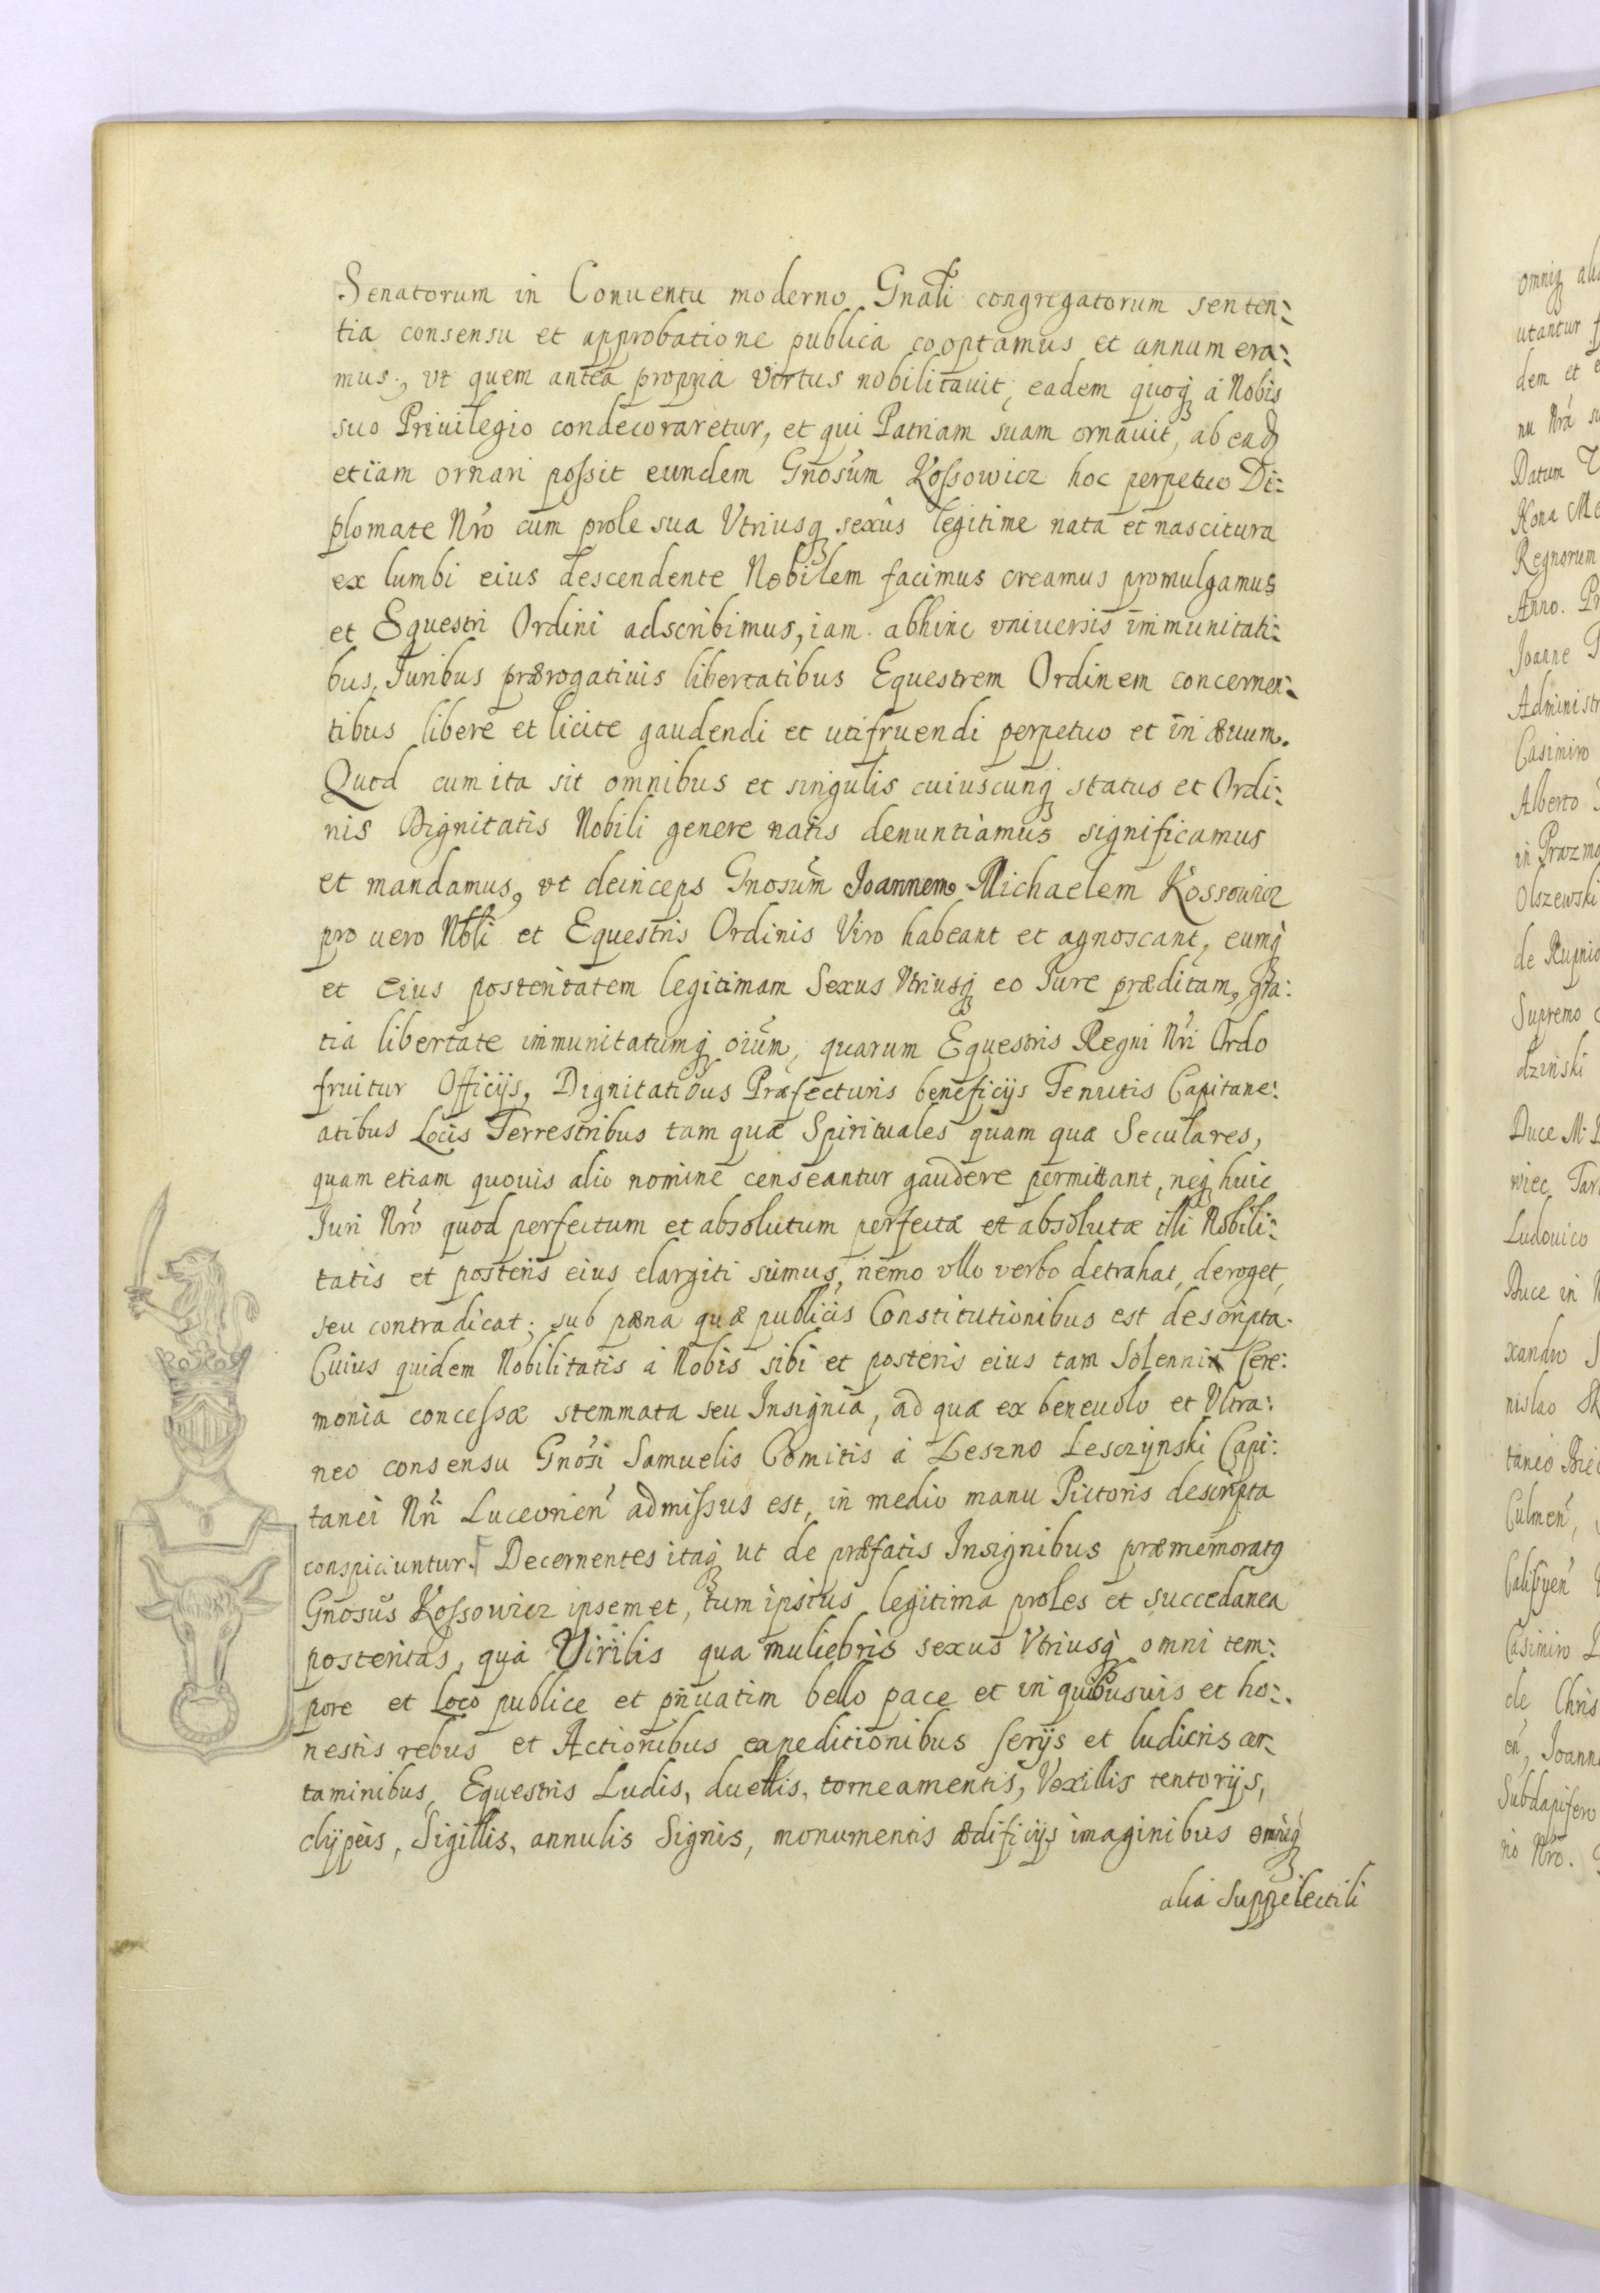 Senatorum in Conuentu moderno Gnãli congregatorum senten:
tia consensu et approbatione publica cooptamus et annumera:
mus, vt quem antea propria virtus nobilitauit, eadem quoq́ á Nobis
suo Priuilegio condecoraretur, et qui Patriam suam ornauit, ab ead
etiam ornari possit eundem Gnosum Kossowicz hoc perpetuo Di:
plomate Nrõ cum prole sua Vtriusq́ sexus legitime nata et nascitura
ex lumbi eius descendente Nobilem facimus creamus promulgamus
et Equestri Ordini adscribimus, iam abhinc vniuersis immunitati:
bus, Iuribus prærogatiuis libertatibus Equestrem Ordinem concernen:
tibus libere et licite gaudendi et utifruendi perpetuo et in æuum.
Quod cum ita sit omnibus et singulis cuiuscunq́ status et Ordi:
nis Dignitatis Nobili genere natis denuntiamus significamus
et mandamus, vt deinceps Gnosum Joannem Michaelem Kossowicz
pro uero Nobli et Equestris Ordinis Viro habeant et agnoscant, eumq́
et eius posteritatem legitimam Sexus Vtriusq́ eo Iure præditam, gra:
tia libertate immunitatumq́ oium, quarum Equestris Regni Nri Ordo
fruitur Officijs, Dignitatibus Præfecturis beneficijs Tenutis Capitane:
atibus Locis Terrestribus tam quæ Spirituales quam quæ Seculares,
quam etiam quouis alio nomine censeantur gaudere permittant, neq́ huic
Iuri Nrõ quod perfectum et absolutum perfectæ et absolutæ illi Nobili:
tatis et posteris eius elargiti sumus, nemo vllo verbo detrahat, deroget,
seu contradicat; sub pæna quæ publicis Constitutionibus est descripta.
Cuius quidem Nobilitatis á Nobis sibi et posteris eius tam Solenni Cere:
monia concessæ stemmata seu Insignia, ad quæ ex beneuolo et Vltra:
neo consensu Gnosi Samuelis Comitis á Leszno Lesczynski Capi:
tanei Nri Luceorien admissus est, in medio manu Pictoris descripta
conspiciuntur. Decernentes itaq́ ut de præfatis Insignibus præmemoratg
Gnosus Kossowicz ipsemet, tum ipsius legitima proles et succedanea
posteritas, quá Virilis qua muliebris sexus Vtriusq́ omni tem:
pore et Loco publice et priuatim bello pace et in quibusuis et ho:
nestis rebus et Actionibus expeditionibus serijs et ludicris cer:
taminibus, Equestris Ludis, duellis, torneamentis, Vexillis tentorijs,
clypeis, Sigillis, annulis Signis, monumentis ædificijs imaginibus omniq́
alia suppelectili
omniq́
utantur
dem et
nu Nrá
Datum
Regnorum
Anno.
Joanne
Casimiro
Alberto
Olszewski
Supremo
dzinski
Duce
Ludouico
Duce in
xandro
nislao
Casimiro
de Chris
Subdapifero
Nrõ.